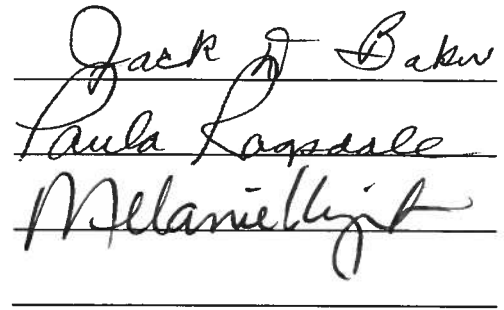 Jack D Baker
Paula Ragsdale
Melanie